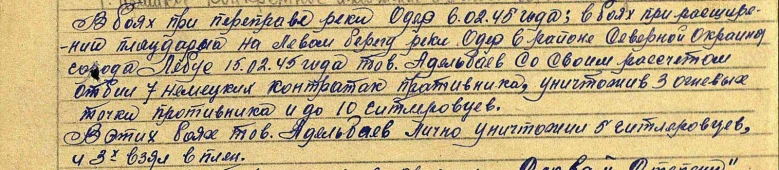 В боях при переправе реки Одер 6.02.45 года; в боях при расшире-
-нии плацдарма на Левом берегу реки Одер в районе Северной Окраины
города Лебус 15.02.45 года тов. Адельбаев со своим расчетом
отбил 7 немецких контратак противника, уничтожив 3 огневых
точки противника и до 10 гитлеровцев.
В этих боях тов. Адельбаев Лично уничтожил 5 гитлеровцев,
и 3х взял в плен.